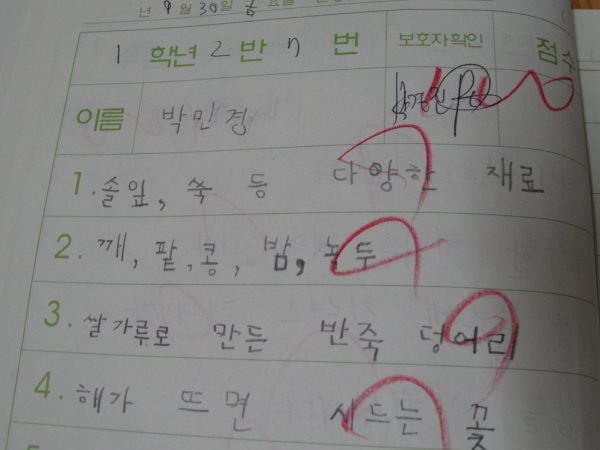 년 9월 30일 금요일
1 학년 2 반 7 번 보호자확인 점수
이름 박민경
1. 솔잎, 쑥 등 다양한 재료
2. 깨, 팥, 콩, 밤, 녹두
3. 쌀가루로 만든 반죽 덩어리
4. 해가 뜨면 시드는 꽃